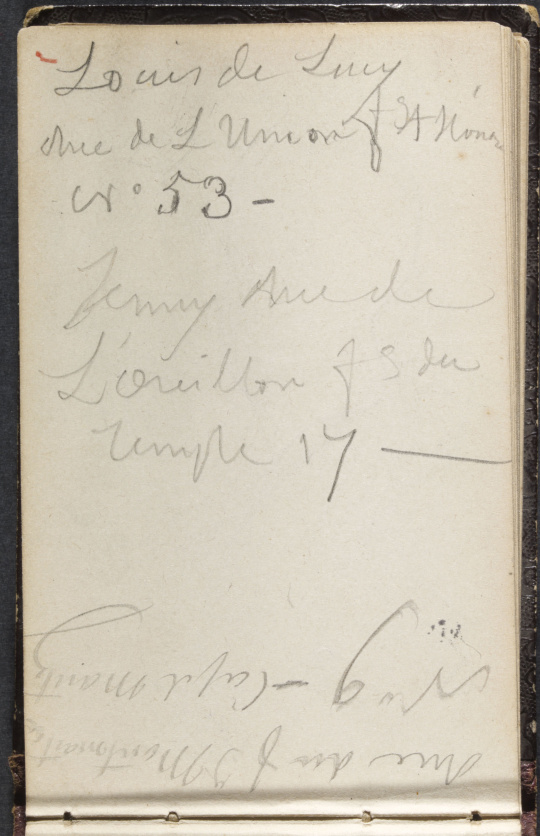 Louis de Lucy
Rue de L'Union f St Honoré
N° 53 -
Jenny Rue de
L'Oreillon f S du
Temple 17 —
Rue du f Montmartre
N° 9 -